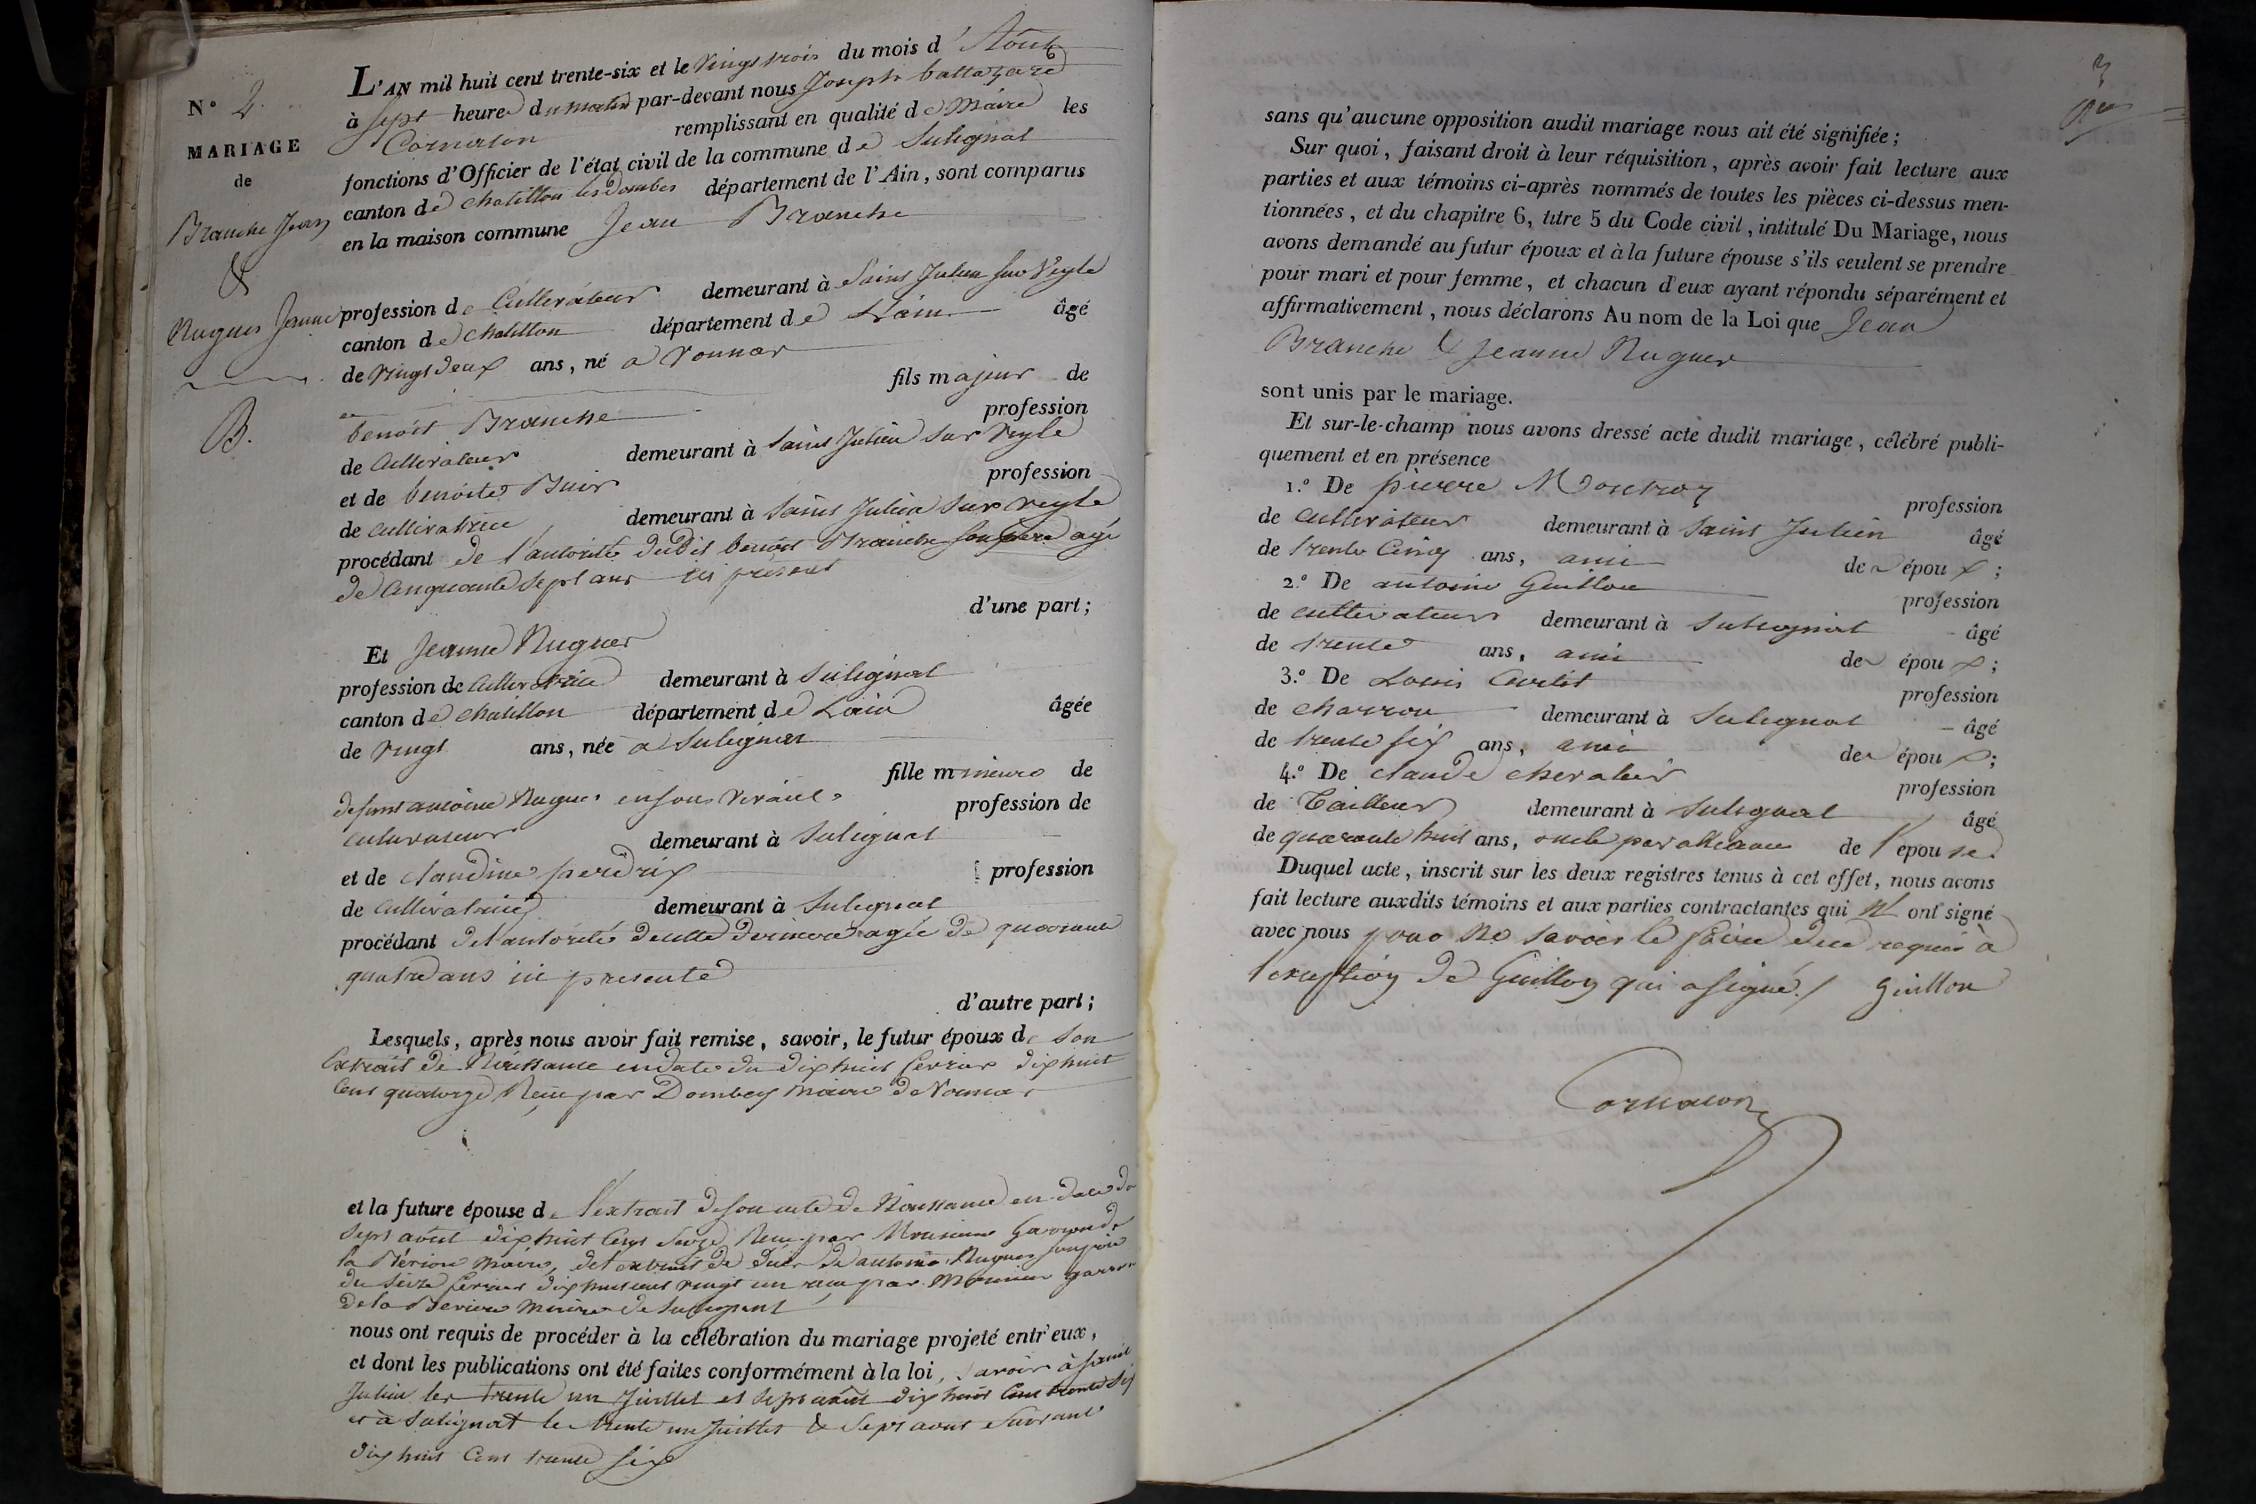 N° 2.
MARIAGE
de
Branche Jean
&
Nugues Jeanne
B.
L'AN mil huit cent trente-six et le vingt trois du mois d'Aout
à sept heures du matin par-devant nous Joseph baltazard
Cornaton remplissant en qualité de Maire les
fonctions d'Officier de l'état civil de la commune de Sulignat
canton de chatillon les dombes département de l'Ain, sont comparus
en la maison commune Jean Branche
profession de Cultivateur demeurant à Saint Julien sur Veyle
canton de chatillon département de L'ain âgé
de vingt deux ans, né a Vonnas
fils majeur de
benoit Branche profession
de Cultivateur demeurant à Saint Julien sur Veyle
et de benoite profession
de cultivatrice demeurant à Saint Julien sur Veyle
procédant de l'autorité dudit benoit Branche son père agé
de cinquante sept ans ici présent
d'une part;
Et Jeanne Nugues
profession de Cultivatrice demeurant à Sulignat
canton de chatillon département de L'ain âgée
de vingt ans, née a Sulignat
fille mineure de
defunt antoine Nugues en son vivant profession de
cultivateur demeurant à Sulignat
et de claudine perdrix profession
de Cultivatrice demeurant à Sulignat
procédant de l'autorité de cette derniere agée de quarante
quatre ans ici presente
d'autre part;
Lesquels, après nous avoir fait remise, savoir, le futur époux de son
Extrait de Naissance en date du dix huit fevrier dix huit
Cent quatorze Reçu par Dombey maire de Vonnas
et la future épouse de l'extrait de son acte de Naissance en date du
sept aout dix huit Cent Seize Reçu par Monsieur Garron de
la Bévière maire, de l'extrait de décès de antoine Nugues son père
du seize fevrier dix huit cent vingt un reçu par Monsieur garron
de la Beviere maire de Sulignat
nous ont requis de procéder à la célébration du mariage projeté entr'eux,
et dont les publications ont été faites conformément à la loi, savoir à saint
Julien les trente un Juillet et sept aout dix huit Cent trente Six
et à Sulignat le trente un Juillet & sept aout suivant
dix huit Cent trente six
3
sans qu'aucune opposition audit mariage nous ait été signifiée;
Sur quoi, faisant droit à leur réquisition, après avoir fait lecture aux
parties et aux témoins ci-après nommés de toutes les pièces ci-dessus men-
tionnées, et du chapitre 6, titre 5 du Code civil, intitulé Du Mariage, nous
avons demandé au futur époux et à la future épouse s'ils veulent se prendre
pour mari et pour femme, et chacun d'eux ayant répondu séparément et
affirmativement, nous déclarons Au nom de la Loi que Jean
Branche & Jeanne Nugues
sont unis par le mariage.
Et sur-le-champ nous avons dressé acte dudit mariage, célébré publi-
quement et en présence
1.° De pierre Montroz profession
de cultivateur demeurant à Saint Julien âgé
de trente Cinq ans, ami de époux;
2.° De antoine Guillon profession
de cultivateur demeurant à Sulignat âgé
de trente ans, ami de époux;
3.° De Louis profession
de charron demeurant à Sulignat âgé
de trente six ans, ami de époux;
4.° De claude chevalier profession
de Tailleur demeurant à Sulignat âgé
de quarante huit ans, oncle par alliance de l'epouse.
Duquel acte, inscrit sur les deux registres tenus à cet effet, nous avons
fait lecture auxdits témoins et aux parties contractantes qui n'ont signé
avec nous pour ne savoir le faire de ce requis à
l'exception de Guillon qui a signé./ Guillon
Cornaton